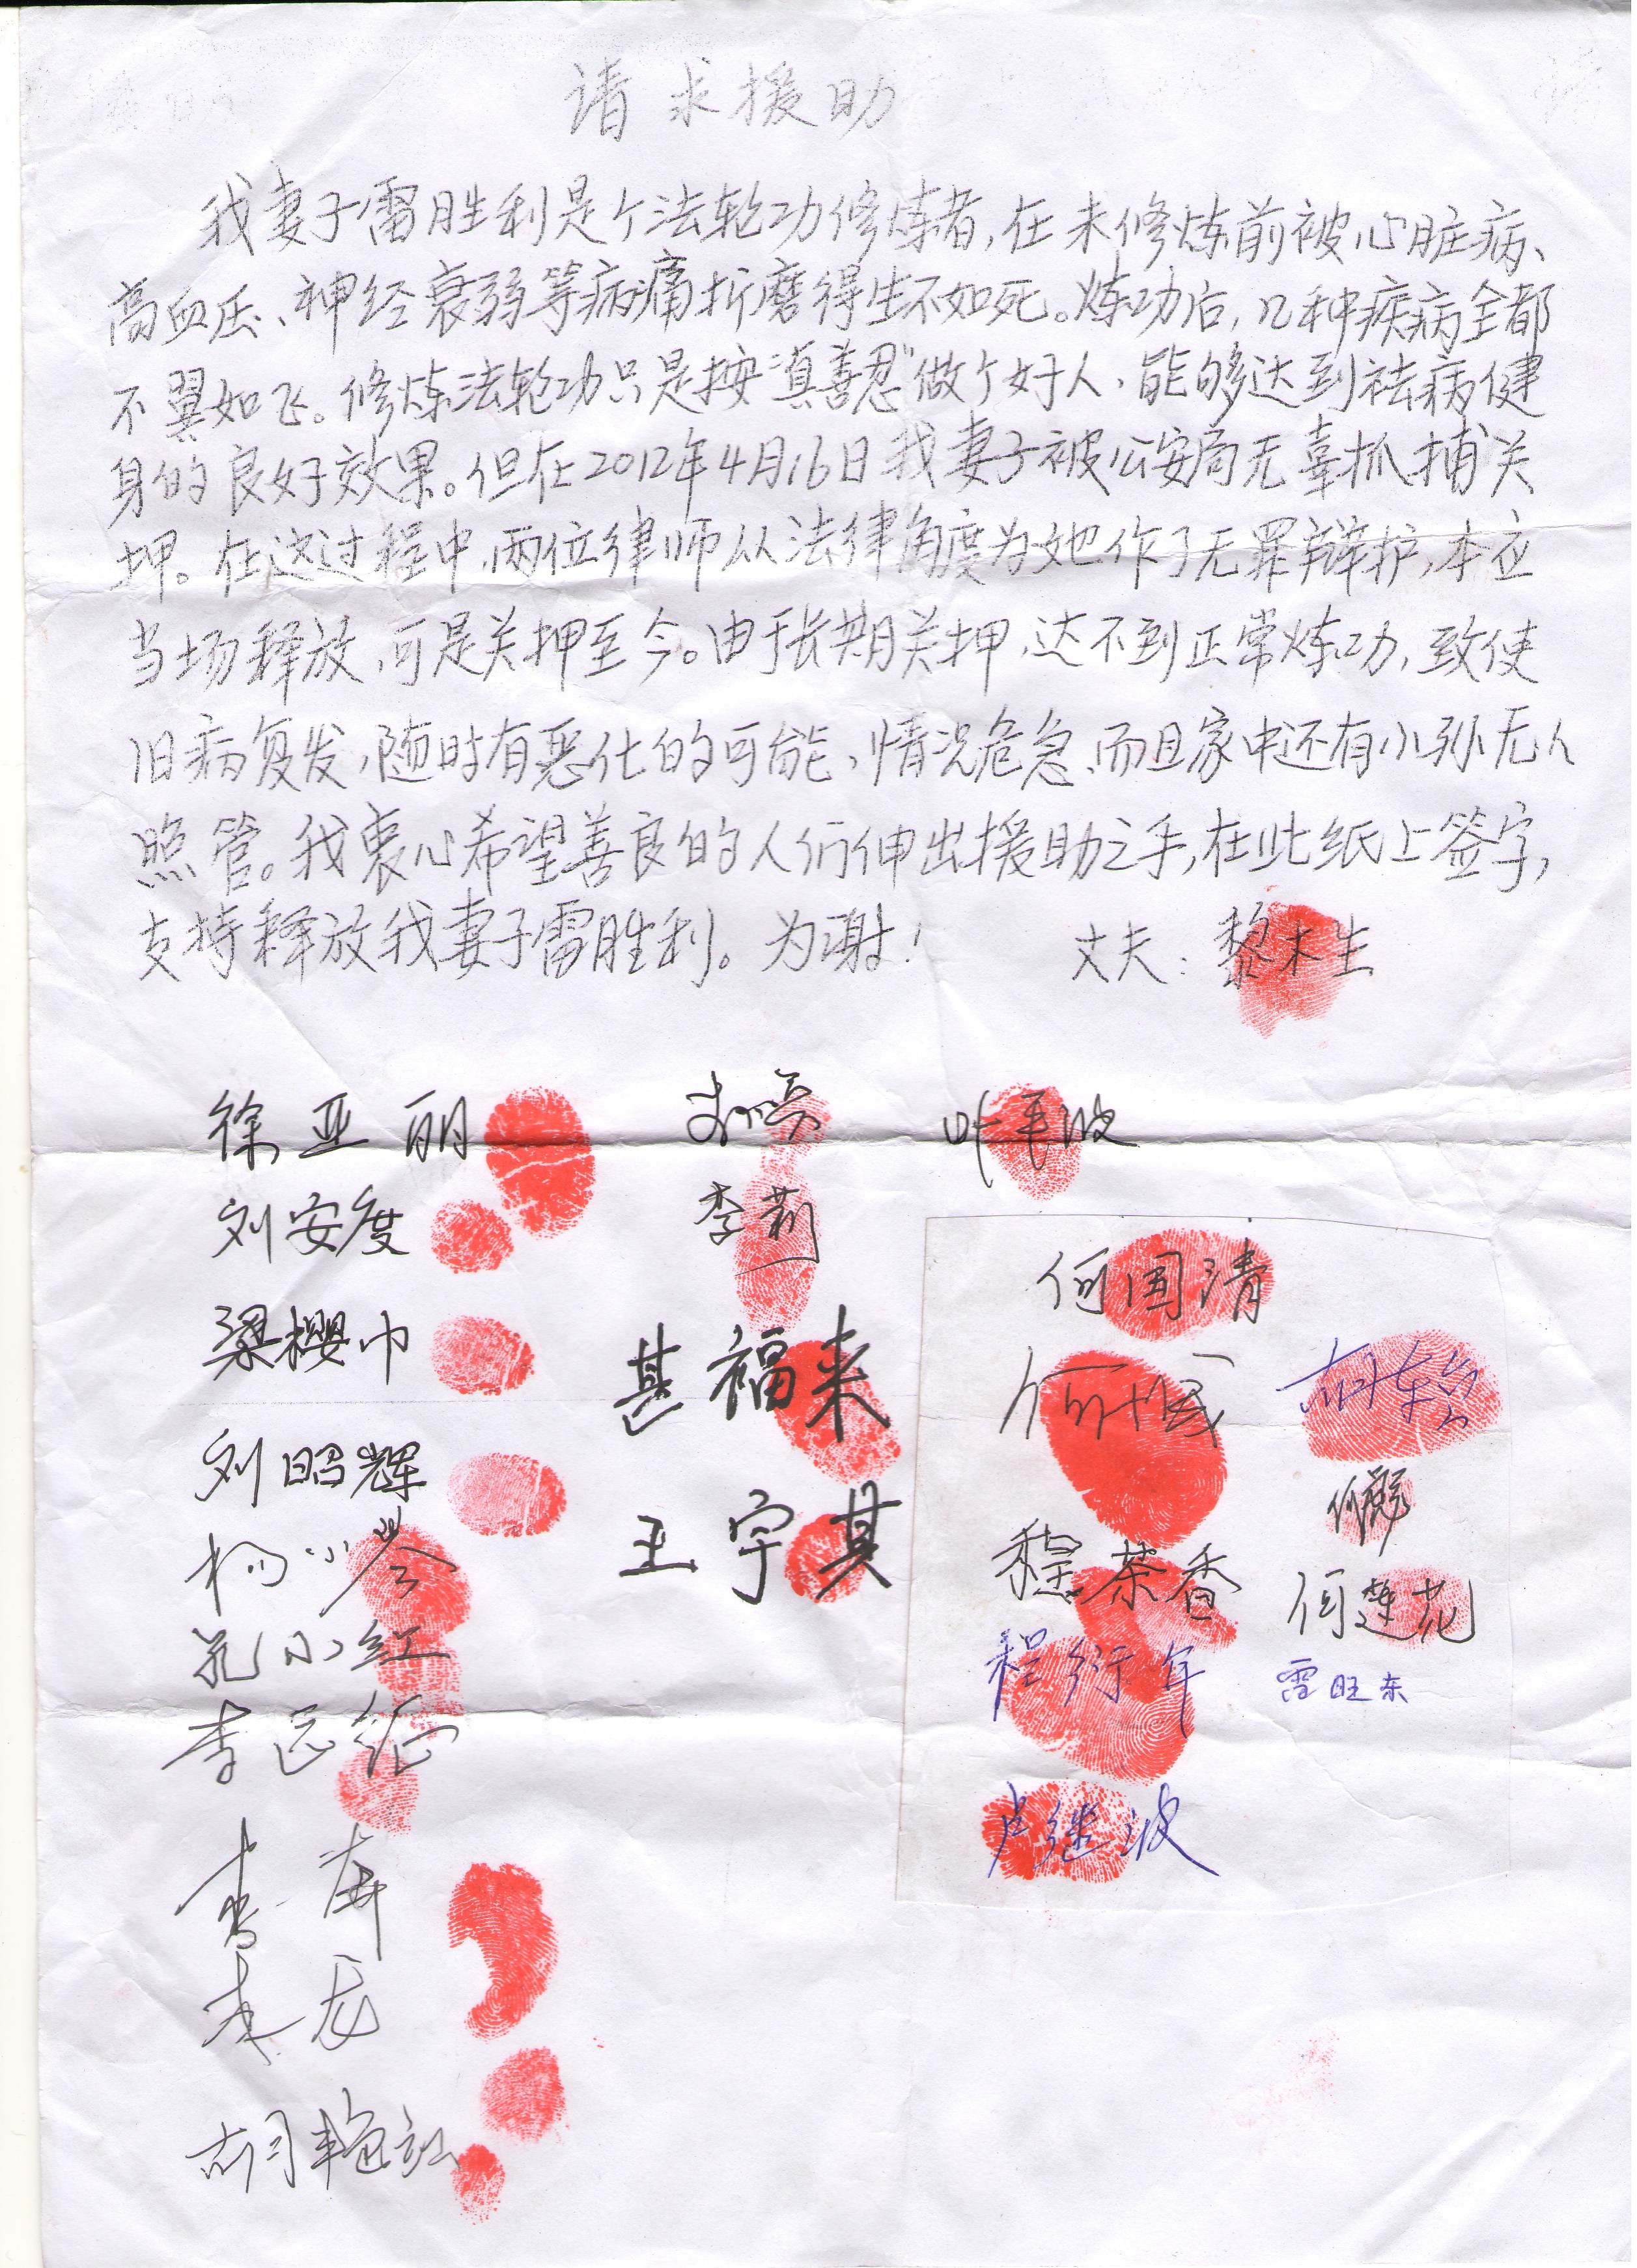 请求援助
我妻子雷胜利是个法轮功修炼者,在未修炼前被心脏病、
高血压、神经衰弱等病痛折磨得生不如死。炼功后,几种疾病全都
不翼如飞。修炼法轮功只是按"真善忍"做个好人,能够达到祛病健
身的良好效果。但在2012年4月16日我妻子被公安局无辜抓捕关
押。在这过程中,两位律师从法律角度为她作了无罪辩护,本应
当场释放,可是关押至今。由于长期关押,达不到正常炼功,致使
旧病复发,随时有恶化的可能,情况危急,而且家中还有小孙无人
照管。我衷心希望善良的人们伸出援助之手,在此纸上签字,
支持释放我妻子雷胜利。为谢!
丈夫:黎木生
徐亚丽
刘安度
李莉
何国清
梁樱巾
甚福来
刘昭辉
王宇其
程茶香
何莲花
孔小红
程衍年
雷旺东
卢继波
李龙
胡艳红